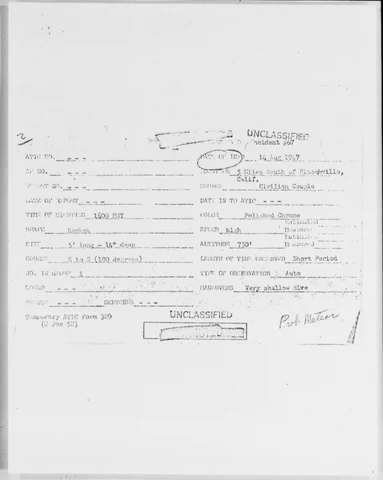 2
UNCLASSIFIED
Incident 367
ATIC NO. - - -
DATE OF INFO 14 Aug 1947
AF NO. - - -
LOCATION 5 Miles South of Placerville, Calif.
REPORT NO. - - -
SOURCE Civilian Couple
DATE OF REPORT - - -
DATE IN TO ATIC - - -
TIME OF SIGHTING 1600 PST
COLOR Polished Chrome
SHAPE Rocket
SPEED High
Estimated
Measured
SIZE 5' long - 14" deep
ALTITUDE 750'
Estimated
Measured
COURSE N to S (180 degrees)
LENGTH OF TIME OBSERVED Short Period
NO. IN GROUP 1
TYPE OF OBSERVATION Auto
SOUND - - -
MANEUVERS Very shallow dive
PHOTOS - - - SKETCHES - - -
Temporary ATIC Form 329
(2 Jan 52)
UNCLASSIFIED
Prob Meteor